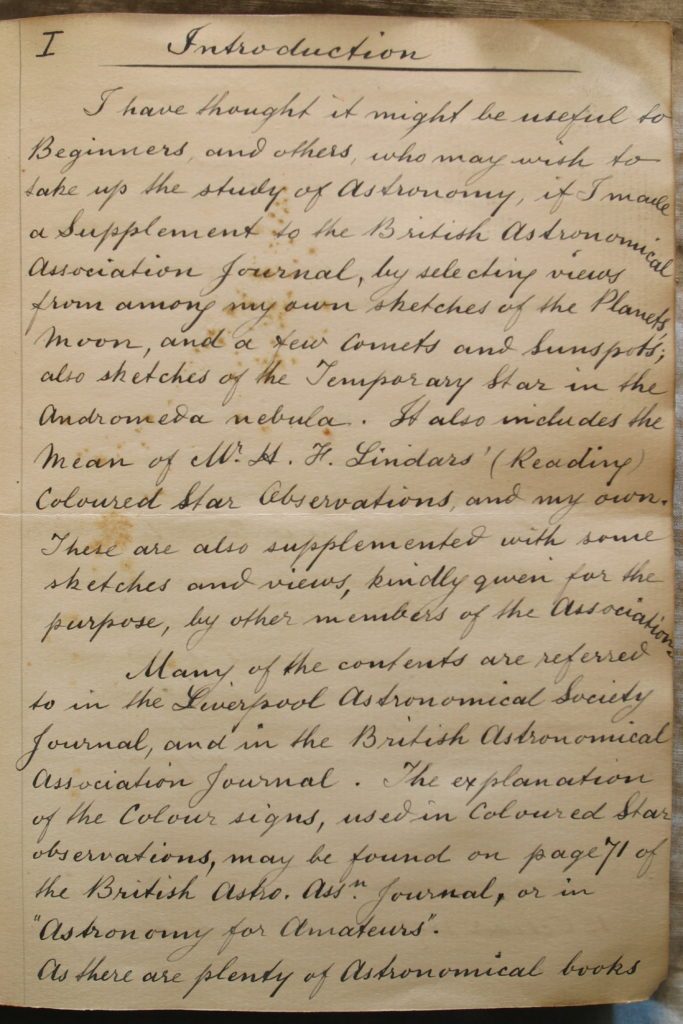 I Introduction
I have thought it might be useful to
Beginners, and others, who may wish to
take up the study of Astronomy, if I made
a Supplement to the British Astronomical
Association Journal, by selecting views
from among my own sketches of the Planets,
Moon, and a few Comets and Sunspots;
also sketches of the Temporary Star in the
Andromeda nebula. It also includes the
Mean of Mr. H. F. Lindars' (Reading)
Coloured Star Observations, and my own.
These are also supplemented with some
sketches and views, kindly given for the
purpose, by other members of the Association.
Many of the contents are referred
to in the Liverpool Astronomical Society
Journal, and in the British Astronomical
Association Journal. The explanation
of the Colour signs, used in Coloured Star
observations, may be found on page 71 of
the British Astro. Assn. Journal, or in
"Astronomy for Amateurs".
As there are plenty of Astronomical books